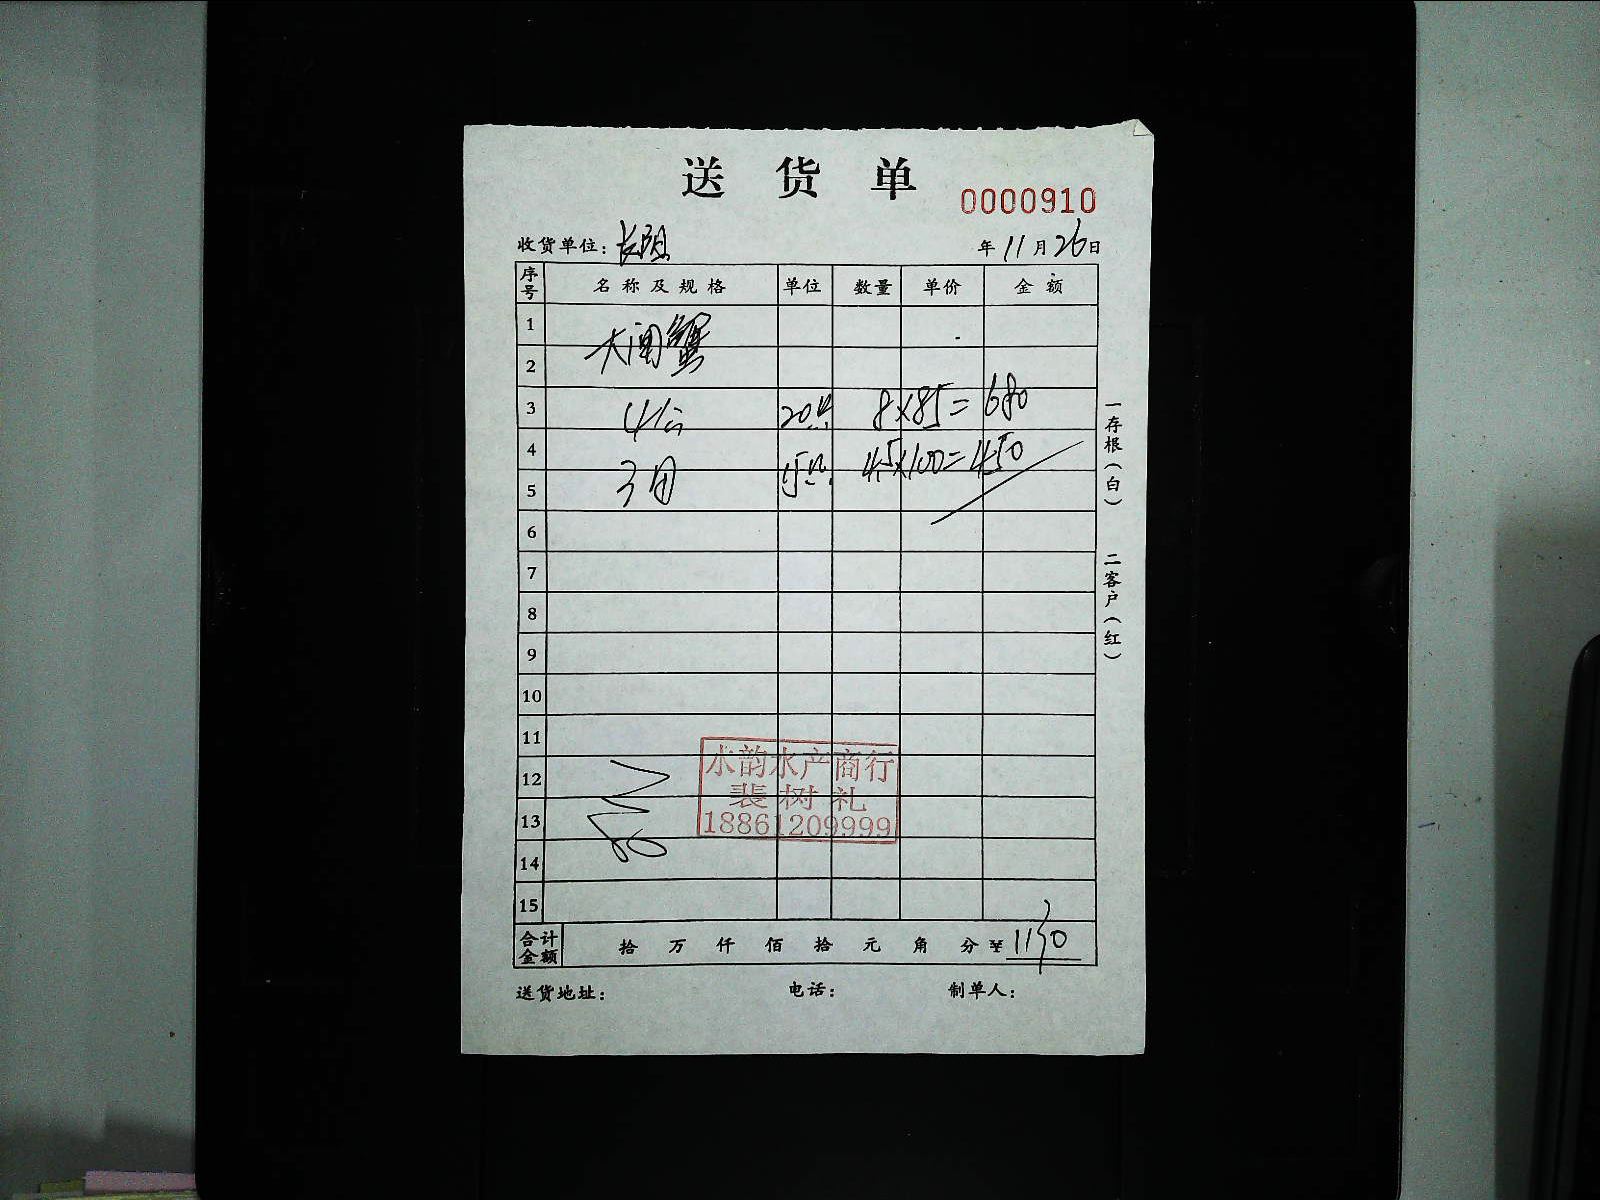 送货单
0000910
收货单位: 年 11 月 26 日
序号 名称及规格 单位 数量 单价 金额
1
大闸蟹
2
3 4公 20只 8×85=680
4 4.5×100=450
5 3母 15只
6
7
8
9
10
11
12
13
14
15
水韵水产商行
裴树礼
18861209999
合计金额 拾 万 仟 佰 拾 元 角 分 ¥ 1130
送货地址: 电话: 制单人:
一存根(白)
二客户(红)